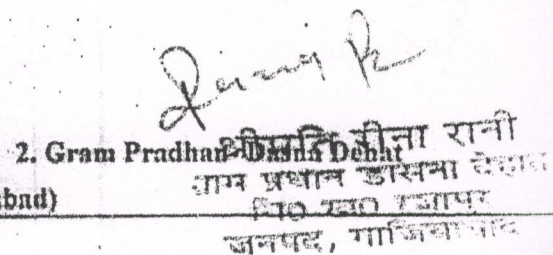 2. Gram Pradhan Dasna Dehat
श्रीमति रीना रानी
ग्राम प्रधान डासना देहात
वि0 ख0 रजापुर
bad)
जनपद, गाजियाबाद